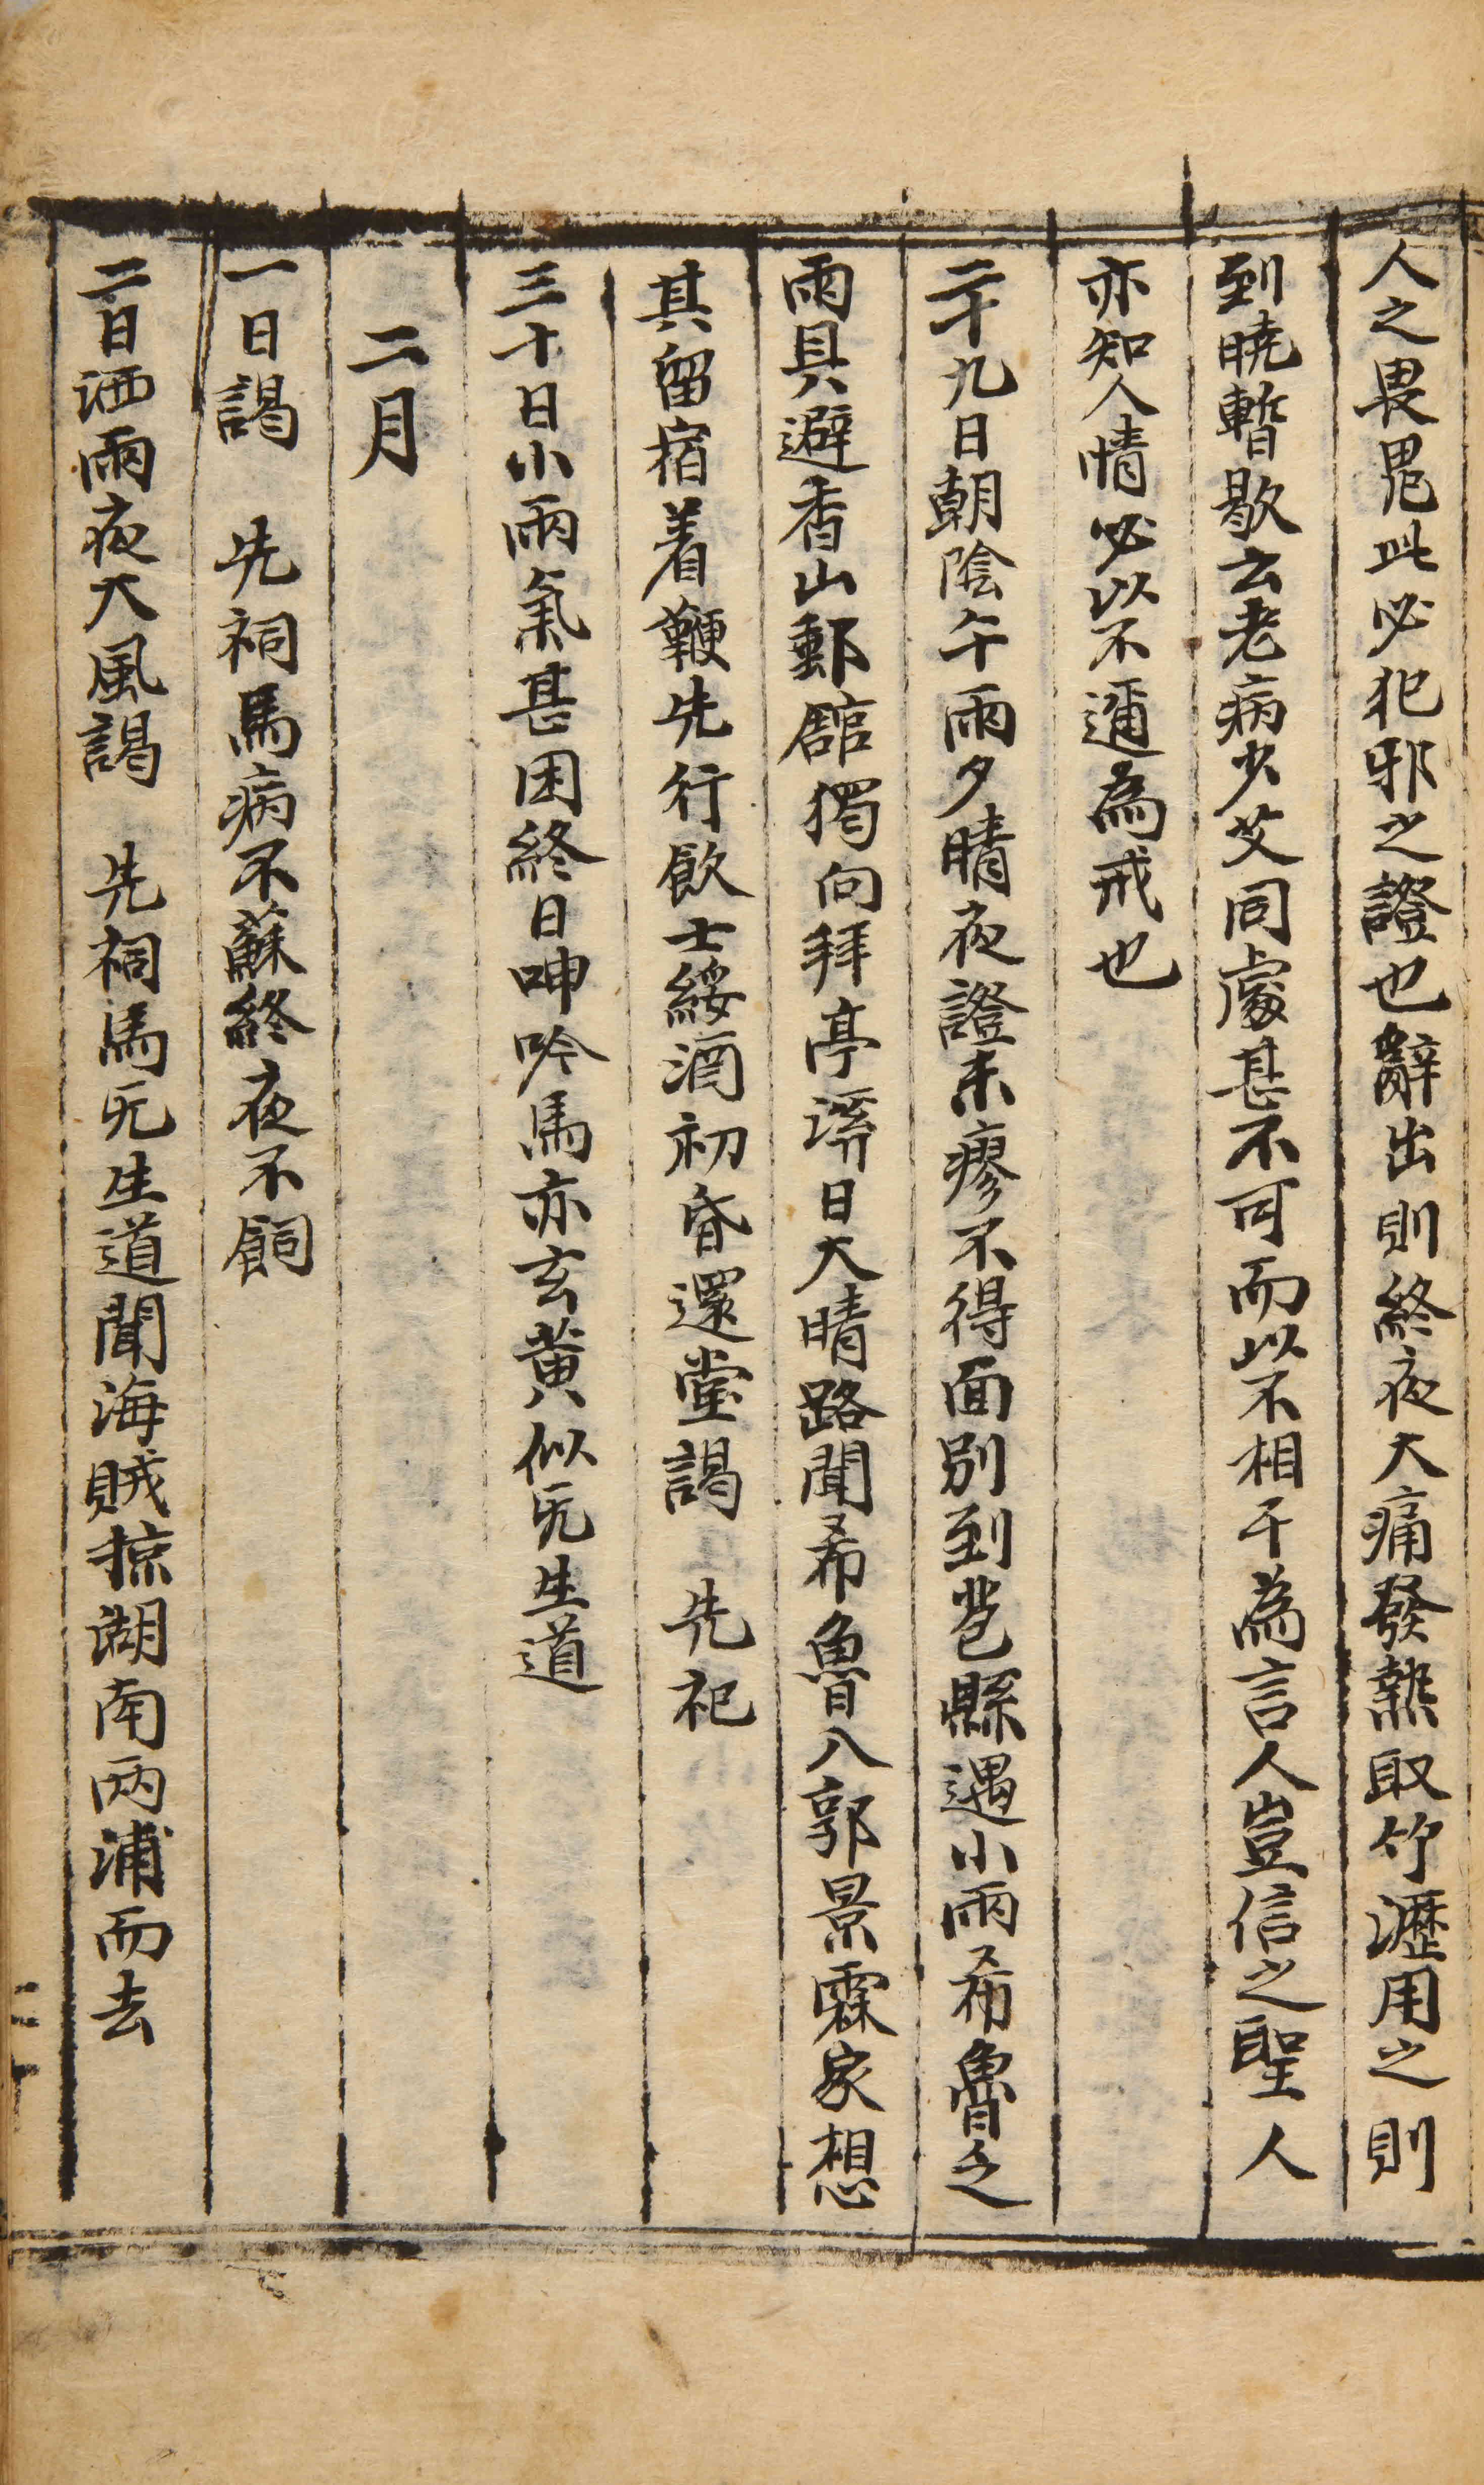 人之畏鬼此必犯邪之證也辭出則終夜大痛發熱取竹瀝用之則
到曉暫歇云老病少艾同處甚不可而以不相干為言人豈信之聖人
亦知人情必以不邇為戒也
二十九日朝陰午雨夕晴夜證未瘳不得面別到苞縣遇小雨希魯之
雨具避香山郵館獨向拜亭溪日大晴路聞希魯日入郭景霖家想
其留宿着鞭先行飮士綏酒初昏還堂謁 先祀
三十日小雨氣甚困終日呻吟馬亦玄黃似旡生道
二月
一日謁 先祠馬病不蘇終夜不飼
二日洒雨夜大風謁 先祠馬旡生道聞海賊掠湖南两浦而去